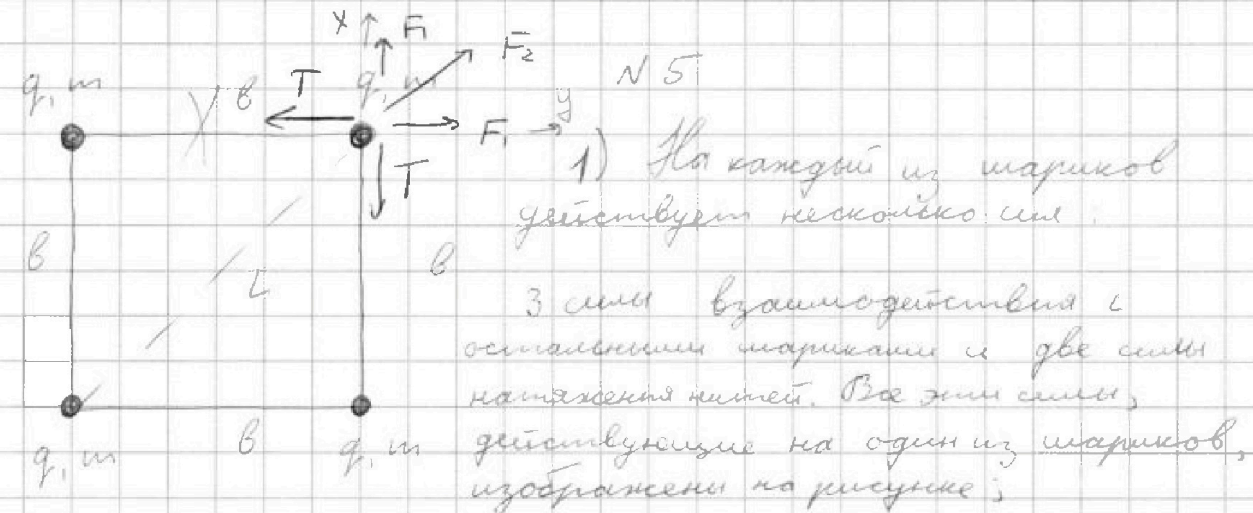 x F₁ F₂
q, m в T q, m N 5
F₁ y
1) На каждый из шариков
T
действует несколько сил.
в L в
3 силы взаимодействия с
остальными шариками и две силы
натяжения нитей. Все эти силы,
q, m в q, m действующие на один из шариков,
изображены на рисунке;